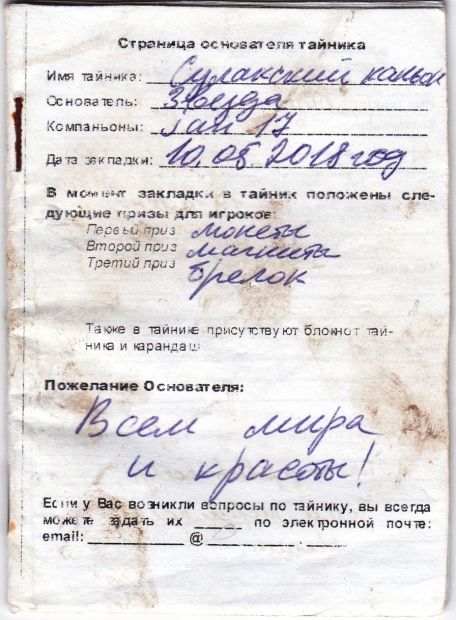 Страница основателя тайника
Имя тайника: Сулакский каньон
Основатель: Звезда
Компаньоны: Jan 17
Дата закладки: 10.05.2018 год
В момент закладки в тайник положены сле-
дующие призы для игроков:
Первый приз монеты
Второй приз магниты
Третий приз брелок
Также в тайнике присутствуют блокнот тай-
ника и карандаш
Пожелание Основателя:
Всем мира
и красоты!
Если у Вас возникли вопросы по тайнику, вы всегда
можете задать их _____ по электронной почте:
email: __________ @ ________ . ___